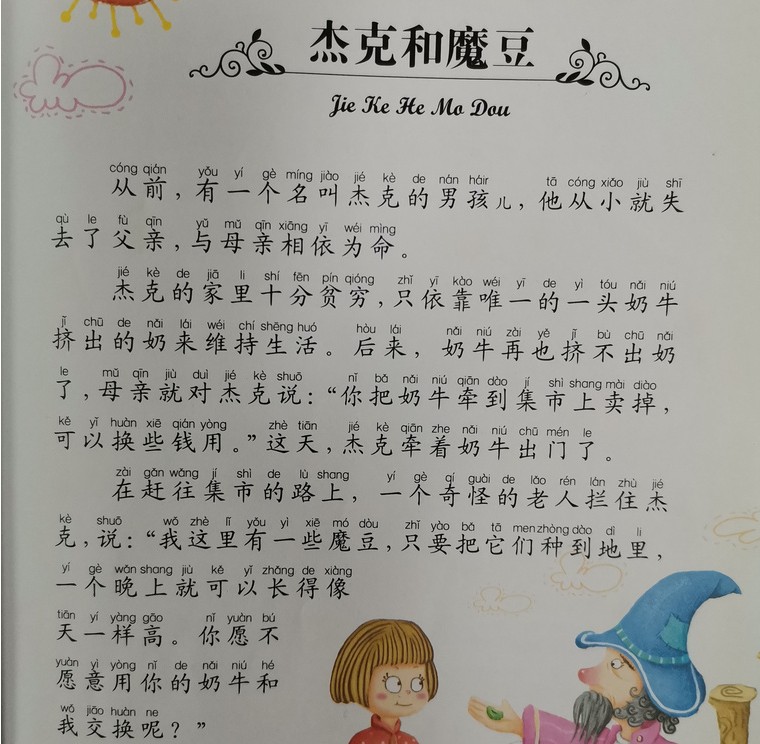 杰克和魔豆
Jie Ke He Mo Dou
cóng qián yǒu yí gè míng jiào jié kè de nán háir tā cóng xiǎo jiù shī
从前，有一个名叫杰克的男孩儿，他从小就失
qù le fù qīn yǔ mǔ qīn xiāng yī wéi mìng
去了父亲，与母亲相依为命。
jié kè de jiā li shí fēn pín qióng zhǐ yī kào wéi yī de yì tóu nǎi niú
杰克的家里十分贫穷，只依靠唯一的一头奶牛
jǐ chū de nǎi lái wéi chí shēng huó hòu lái nǎi niú zài yě jǐ bù chū nǎi
挤出的奶来维持生活。后来，奶牛再也挤不出奶
le mǔ qīn jiù duì jié kè shuō nǐ bǎ nǎi niú qiān dào jí shì shang mài diào
了，母亲就对杰克说：“你把奶牛牵到集市上卖掉，
kě yǐ huàn xiē qián yòng zhè tiān jié kè qiān zhe nǎi niú chū mén le
可以换些钱用。”这天，杰克牵着奶牛出门了。
zài gǎn wǎng jí shì de lù shang yí gè qí guài de lǎo rén lán zhù jié
在赶往集市的路上，一个奇怪的老人拦住杰
kè shuō wǒ zhè lǐ yǒu yì xiē mó dòu zhǐ yào bǎ tā men zhòng dào dì li
克，说：“我这里有一些魔豆，只要把它们种到地里，
yí gè wǎn shang jiù kě yǐ zhǎng de xiàng
一个晚上就可以长得像
tiān yí yàng gāo nǐ yuàn bú
天一样高。你愿不
yuàn yì yòng nǐ de nǎi niú hé
愿意用你的奶牛和
wǒ jiāo huàn ne
我交换呢？”